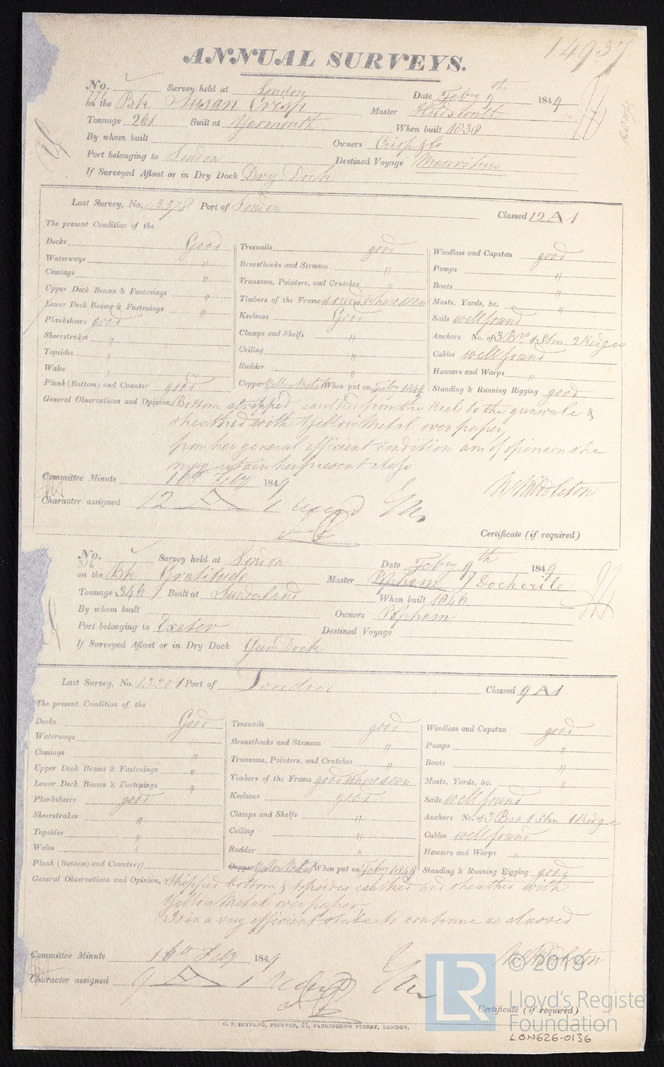 14937
ANNUAL SURVEYS.
No. Survey held at London Date Feby 9th 1849
on the Bk Susan Crisp Master
Tonnage 261 Built at Yarmouth When built 1838
By whom built Owners Crisp & Co
Port belonging to London Destined Voyage Mauritius
If Surveyed Afloat or in Dry Dock Dry Dock
Last Survey, No. 13378 Port of London Classed 12 A 1
The present Condition of the
Decks Good Treenails good Windlass and Capstan good
Waterways " Breasthooks and Stemson " Pumps "
Comings " Transoms, Pointers, and Crutches " Boats "
Upper Deck Beams & Fastenings " Timbers of the Frame where seen Masts, Yards, &c. "
Lower Deck Beams & Fastenings " Keelsons Good Sails well found
Planksheers good Clamps and Shelfs " Anchors No. of 3 Brs 1 Stm 2 Kedges
Sheerstrakes " Ceiling " Cables well found
Topsides " Rudder " Hawsers and Warps "
Wales "
Plank (Bottom) and Counter good Copper Yellow Metal When put on Feby 1849 Standing & Running Rigging good
General Observations and Opinion, Bottom stripped, caulked from the keel to the gunwale &
sheathed with Yellow Metal over paper,
from her general efficient condition am of opinion she
may retain her present class
Committee Minute 16th Feby 1849 W Middleton
Character assigned 12 A 1
Certificate (if required)
No. 316 Survey held at London Date Feby 9th 1849
on the Bk Gratitude Master Popham J Dockerile
Tonnage 346 Built at Sunderland When built 1846
By whom built Owners Popham
Port belonging to Exeter Destined Voyage
If Surveyed Afloat or in Dry Dock Gun Dock
Last Survey, No. Port of London Classed 9 A 1
The present Condition of the
Decks Good Treenails good Windlass and Capstan good
Waterways Breasthooks and Stemson " Pumps "
Comings " Transoms, Pointers, and Crutches " Boats "
Upper Deck Beams & Fastenings " Timbers of the Frame good where seen Masts, Yards, &c. "
Lower Deck Beams & Fastenings " Keelsons good Sails well found
Planksheers good Clamps and Shelfs " Anchors No. of 3 Brs 1 Stm 1 Kedge
Sheerstrakes " Ceiling " Cables well found
Topsides " Rudder " Hawsers and Warps "
Wales "
Plank (Bottom) and Counter Copper Yellow Metal When put on Feby 1849 Standing & Running Rigging good
General Observations and Opinion, Stripped bottom & topsides caulked and sheathed with
Yellow Metal over paper
Is in a very efficient state to continue as classed
Committee Minute 16th Feby 1849 W Middleton
Character assigned 9 A 1
Certificate (if required)
C. F. SEYFANG, PRINTER, 57, FARRINGDON STREET, LONDON.
LR © 2019
Lloyd's Register
Foundation
LON626-0136